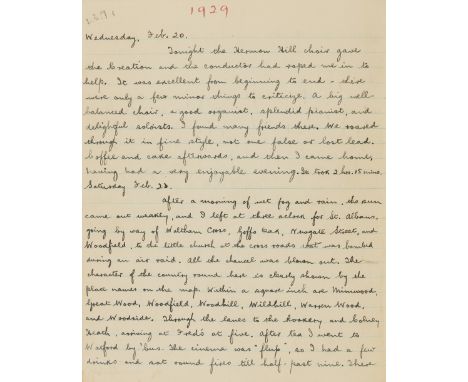 1929
Wednesday, Feb. 20.
Tonight the Hermon Hill choir gave
the Creation and the conductor had roped me in to
help. It was excellent from beginning to end – there
were only a few minor things to criticize. A big well-
balanced choir, a good organist, splendid pianist, and
delightful soloists. I found many friends there. We roared
through it in fine style, not one false or lost lead.
Coffee and cake afterwards, and then I came home,
having had a very enjoyable evening. It took 2 hrs. 15 mins.
Saturday Feb. 23.
After a morning of wet fog and rain, the sun
came out weakly, and I left at three oclock for St. Albans,
going by way of Waltham Cross, Goffs Oak, Newgate Street, and
Woodfield, to the little church at the cross roads that was bombed
during an air raid. All the chancel was blown out. The
character of the country round here is clearly shown by the
place names on the map. Within a square inch are Mimwood,
Great Wood, Woodfield, Woodhill, Wildhill, Warren Wood,
and Woodside. Through the lanes to the Rookery and Colney
Heath, arriving at Fred's at five. After tea I went to
Watford by 'bus. The cinema was "flup", so I had a few
drinks and sat round fires till half-past nine. There